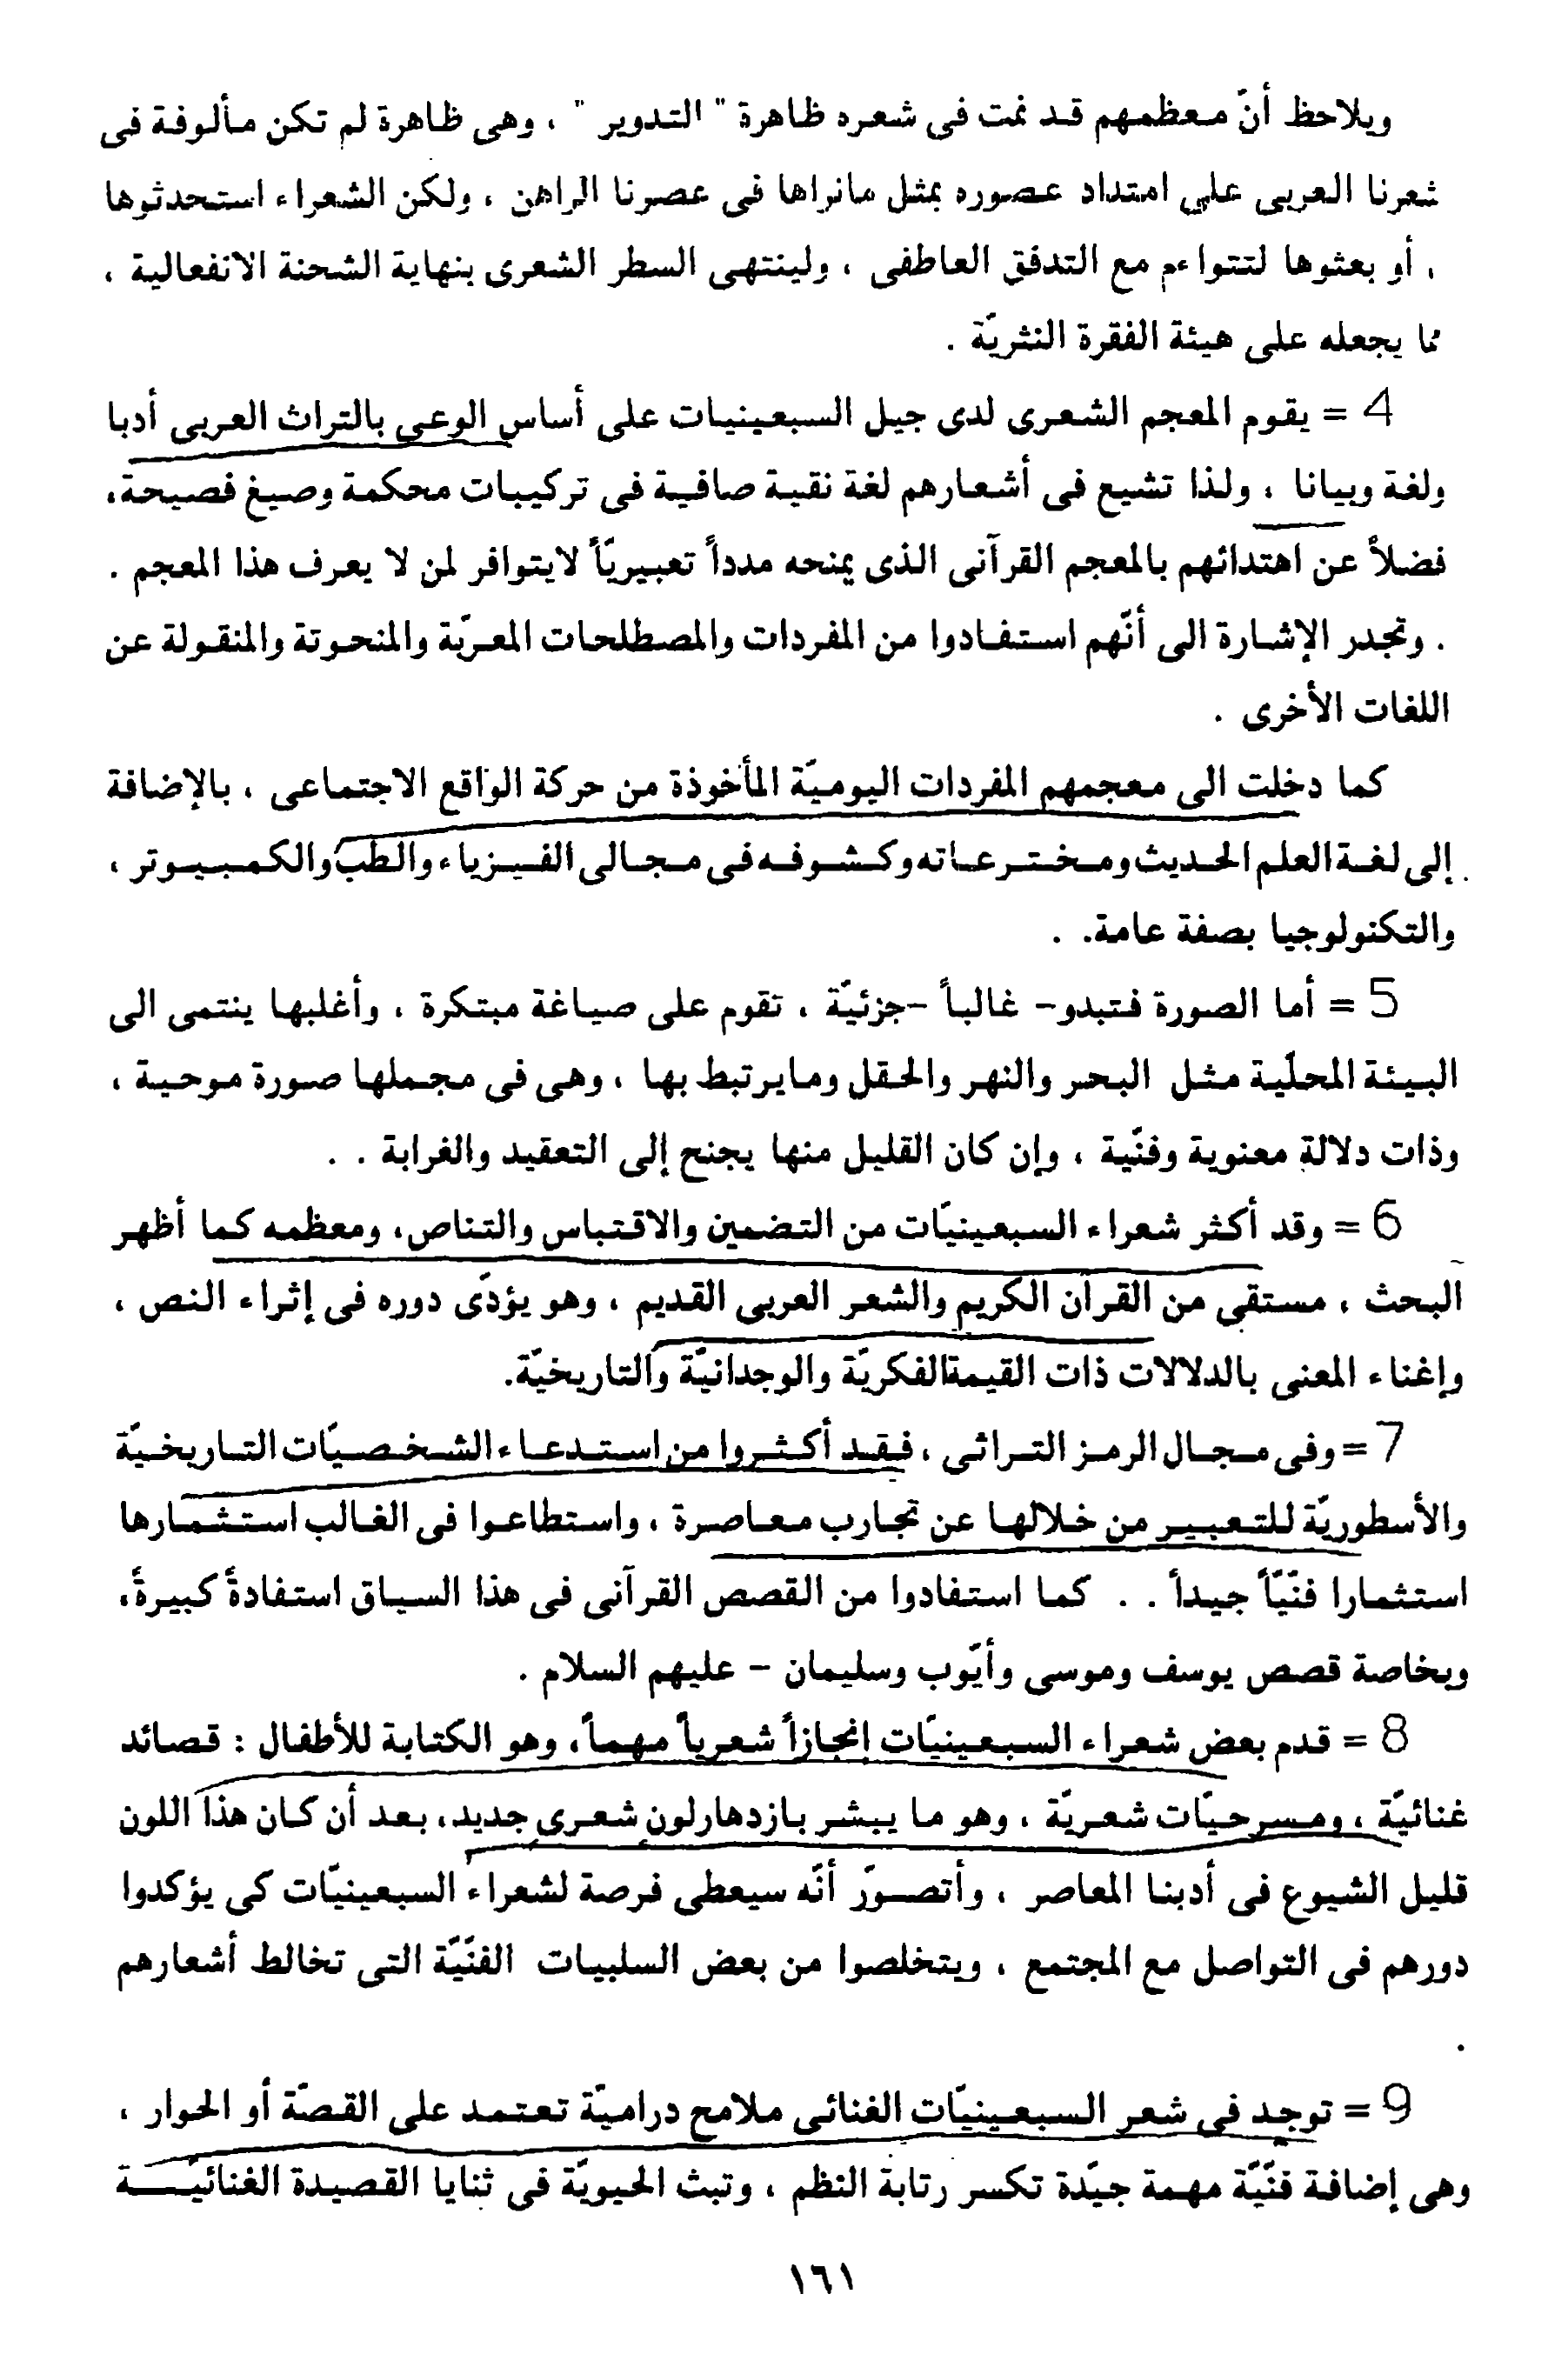 ويلاحظ أنّ معظمهم قد نمت فى شعره ظاهرة " التدوير " ، وهى ظاهرة لم تكن مألوفة فى
شعرنا العربى على امتداد عصوره بمثل مانراها فى عصرنا الراهن ، ولكن الشعراء استحدثوها
، أو بعثوها لتتواءم مع التدفق العاطفى ، ولينتهى السطر الشعرى بنهاية الشحنة الانفعالية ،
مما يجعله على هيئة الفقرة النثريّة .
4 = يقوم المعجم الشعرى لدى جيل السبعينيات على أساس الوعى بالتراث العربى أدبا
ولغة وبيانا ، ولذا تشيع فى أشعارهم لغة نقية صافية فى تركيبات محكمة وصيغ فصيحة،
فضلاً عن اهتدائهم بالمعجم القرآنى الذى يمنحه مدداً تعبيريّاً لايتوافر لمن لا يعرف هذا المعجم .
. وتجدر الإشارة الى أنّهم استفادوا من المفردات والمصطلحات المعرّبة والمنحوتة والمنقولة عن
اللغات الأخرى .
كما دخلت الى معجمهم المفردات اليوميّة المأخوذة من حركة الواقع الاجتماعى ، بالإضافة
إلى لغة العلم الحديث ومخترعاته وكشوفه فى مجالى الفيزياء والطب والكمبيوتر ،
والتكنولوجيا بصفة عامة. .
5 = أما الصورة فتبدو- غالباً -جزئيّة ، تقوم على صياغة مبتكرة ، وأغلبها ينتمى الى
البيئة المحلّية مثل البحر والنهر والحقل ومايرتبط بها ، وهى فى مجملها صورة موحية ،
وذات دلالة معنوية وفنّية ، وإن كان القليل منها يجنح إلى التعقيد والغرابة . .
6 = وقد أكثر شعراء السبعينيّات من التضمين والاقتباس والتناص، ومعظمه كما أظهر
البحث ، مستقى من القرآن الكريم والشعر العربى القديم ، وهو يؤدّى دوره فى إثراء النص ،
وإغناء المعنى بالدلالات ذات القيمةالفكريّة والوجدانيّة والتاريخيّة.
7 = وفى مجال الرمز التراثى ، فقد أكثروا من استدعاء الشخصيّات التاريخيّة
والأسطوريّة للتعبير من خلالها عن تجارب معاصرة ، واستطاعوا فى الغالب استثمارها
استثمارا فنّيّاً جيداً . . كما استفادوا من القصص القرآنى فى هذا السياق استفادةً كبيرةً،
وبخاصة قصص يوسف وموسى وأيّوب وسليمان - عليهم السلام .
8 = قدم بعض شعراء السبعينيّات إنجازاً شعرياً مهماً، وهو الكتابة للأطفال : قصائد
غنائيّة ، ومسرحيّات شعريّة ، وهو ما يبشر بازدهارلون شعرى جديد، بعد أن كان هذا اللون
قليل الشيوع فى أدبنا المعاصر ، وأتصوّر أنّه سيعطى فرصة لشعراء السبعينيّات كى يؤكدوا
دورهم فى التواصل مع المجتمع ، ويتخلصوا من بعض السلبيات الفنّيّة التى تخالط أشعارهم
.
9 = توجد فى شعر السبعينيّات الغنائى ملامح دراميّة تعتمد على القصّة أو الحوار ،
وهى إضافة فنّيّة مهمة جيّدة تكسر رتابة النظم ، وتبث الحيويّة فى ثنايا القصيدة الغنائيّــة
١٦١